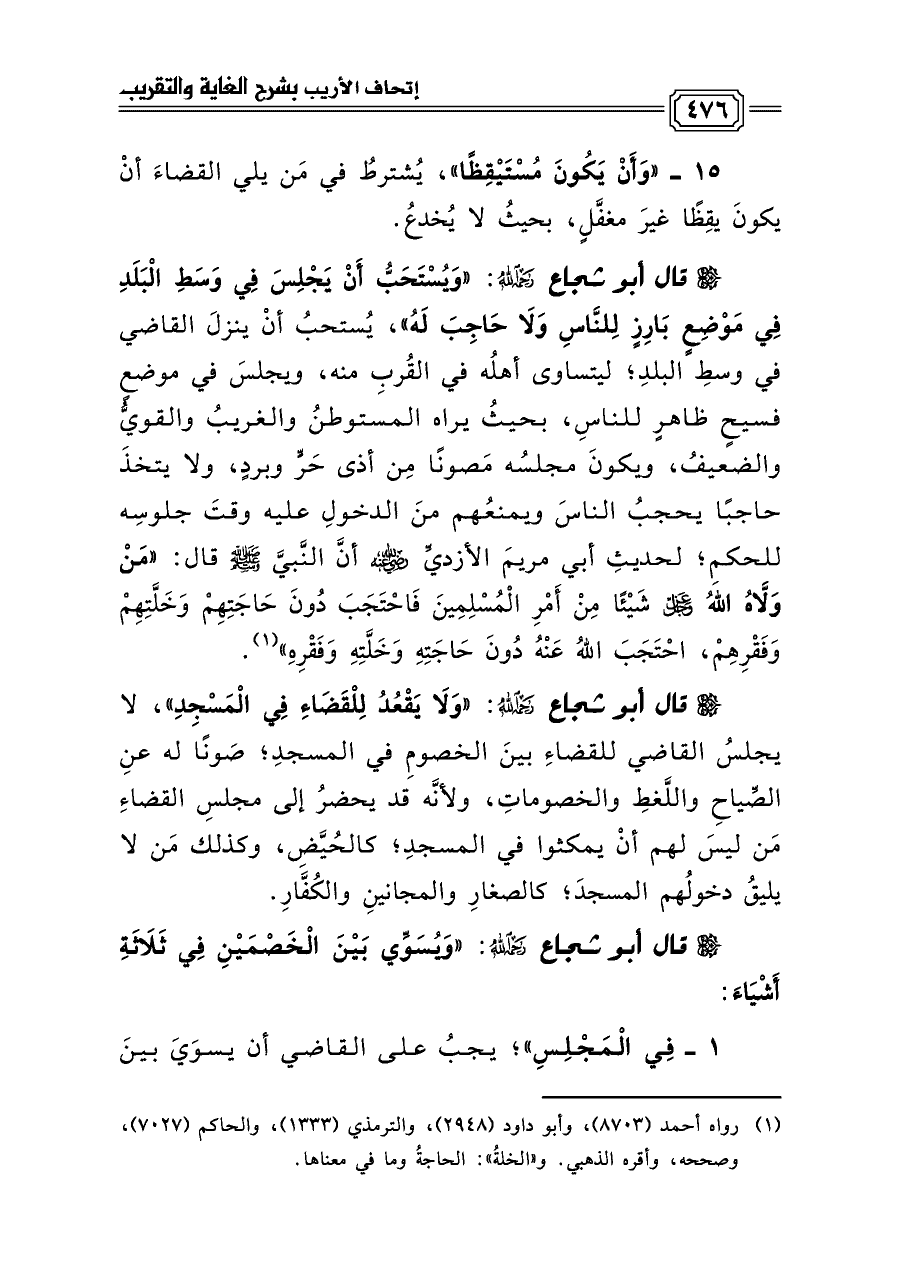 إتحاف الأريب بشرح الغاية والتقريب
٤٧٦
١٥ ـ «وَأَنْ يَكُونَ مُسْتَيْقِظًا»، يُشترطُ في مَن يلي القضاءَ أنْ
يكونَ يقِظًا غيرَ مغفَّلٍ، بحيثُ لا يُخدعُ.
قال أبو شجاع رَحِمَهُ اللهُ: «وَيُسْتَحَبُّ أَنْ يَجْلِسَ فِي وَسَطِ الْبَلَدِ
فِي مَوْضِعٍ بَارِزٍ لِلنَّاسِ وَلَا حَاجِبَ لَهُ»، يُستحبُ أنْ ينزلَ القاضي
في وسطِ البلدِ؛ ليتساوى أهلُه في القُربِ منه، ويجلسَ في موضعٍ
فسيحٍ ظاهرٍ للناسِ، بحيثُ يراه المستوطنُ والغريبُ والقويُّ
والضعيفُ، ويكونَ مجلسُه مَصونًا مِن أذى حَرٍّ وبردٍ، ولا يتخذَ
حاجبًا يحجبُ الناسَ ويمنعُهم منَ الدخولِ عليه وقتَ جلوسِه
للحكمِ؛ لحديثِ أبي مريمَ الأزديِّ رَضِيَ اللهُ عَنْهُ أنَّ النَّبيَّ ﷺ قال: «مَنْ
وَلَّاهُ اللهُ عَزَّ وَجَلَّ شَيْئًا مِنْ أَمْرِ الْمُسْلِمِينَ فَاحْتَجَبَ دُونَ حَاجَتِهِمْ وَخَلَّتِهِمْ
وَفَقْرِهِمْ، احْتَجَبَ اللهُ عَنْهُ دُونَ حَاجَتِهِ وَخَلَّتِهِ وَفَقْرِهِ»(١).
قال أبو شجاع رَحِمَهُ اللهُ: «وَلَا يَقْعُدُ لِلْقَضَاءِ فِي الْمَسْجِدِ»، لا
يجلسُ القاضي للقضاءِ بينَ الخصومِ في المسجدِ؛ صَونًا له عنِ
الصِّياحِ واللَّغطِ والخصوماتِ، ولأنَّه قد يحضرُ إلى مجلسِ القضاءِ
مَن ليسَ لهم أنْ يمكثوا في المسجدِ؛ كالحُيَّضِ، وكذلك مَن لا
يليقُ دخولُهم المسجدَ؛ كالصغارِ والمجانينِ والكُفَّارِ.
قال أبو شجاع رَحِمَهُ اللهُ: «وَيُسَوِّي بَيْنَ الْخَصْمَيْنِ فِي ثَلَاثَةِ
أَشْيَاءَ:
١ ـ فِي الْمَجْلِسِ»؛ يجبُ على القاضي أن يسوّيَ بينَ
(١) رواه أحمد (٨٧٠٣)، وأبو داود (٢٩٤٨)، والترمذي (١٣٣٣)، والحاكم (٧٠٢٧)،
وصححه، وأقره الذهبي. و«الخلةُ»: الحاجةُ وما في معناها.